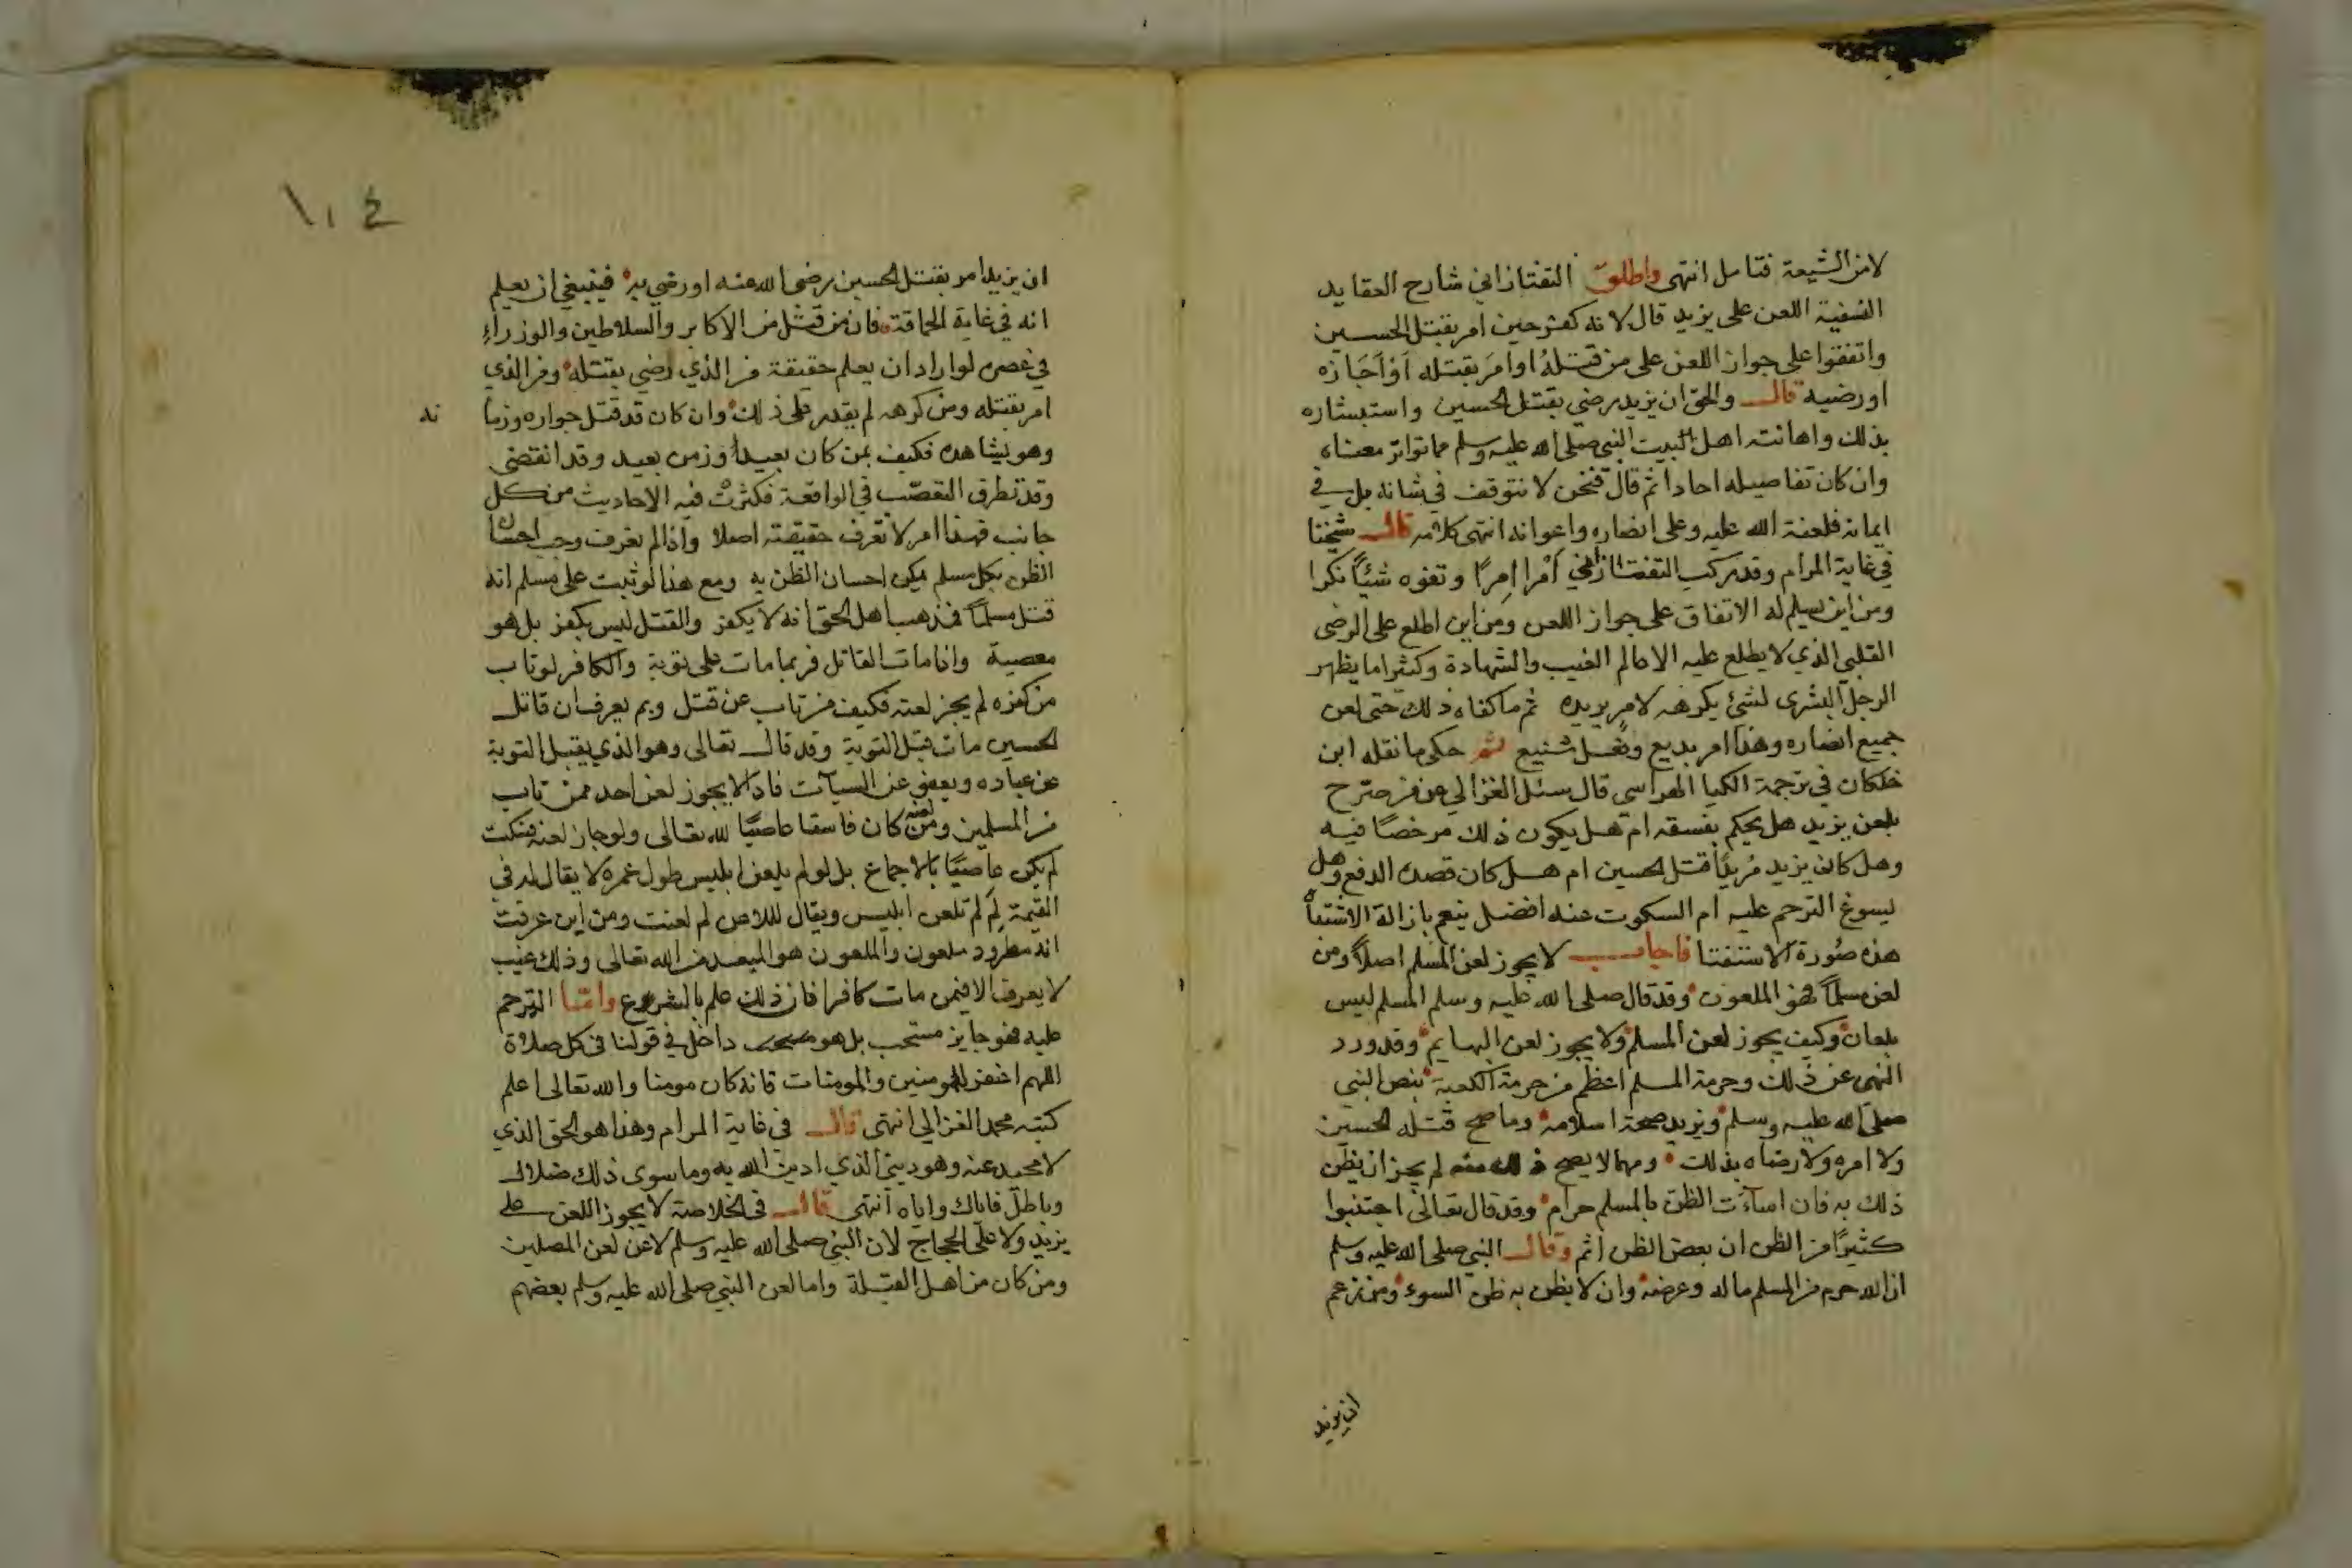 لا من الشيعة فتامل انتهى واطلق التفتازاني شارح العقايد
النسفية اللعن على يزيد قال لانه كفر حين امر بقتل الحسين
واتفقوا على جواز اللعن على من قتله او امر بقتله او اجازه
او رضيه قال والحق ان يزيد رضي بقتل الحسين واستبشاره
بذلك واهانته اهل البيت النبي صلى الله عليه وسلم مما تواتر معناه
وان كان تفاصيله احادا ثم قال فنحن لا نتوقف في شانه بل في
ايمانه فلعنة الله عليه وعلى انصاره واعوانه انتهى كلامه قال شيخنا
في غاية المرام وقد ركب التفتازاني امرا امرا وتفوه شيئا نكرا
ومن اين يسلم له الاتفاق على جواز اللعن ومن اين اطلع على الرضى
القلبي الذي لا يطلع عليه الا عالم الغيب والشهادة وكثيرا ما يظهر
الرجل البشرى لشئ يكرهه لامر يريده ثم ما كفاه ذلك حتى لعن
جميع انصاره وهذا امر بديع وفعل شنيع ثم حكى ما نقله ابن
خلكان في ترجمة الكيا الهراسي قال سئل الغزالي عن من صرح
بلعن يزيد هل يحكم بفسقه ام هل يكون ذلك مرخصا فيه
وهل كان يزيد مريدا قتل الحسين ام هل كان قصده الدفع وهل
يسوغ الترحم عليه ام السكوت عنه افضل ينعم بازالة الاشتباه
هذه صورة الاستفتا فاجاب لا يجوز لعن المسلم اصلا ومن
لعن مسلما فهو الملعون وقد قال صلى الله عليه وسلم المسلم ليس
بلعان وكيف يجوز لعن المسلم ولا يجوز لعن البهايم وقد ورد
النهى عن ذلك وحرمة المسلم اعظم من حرمة الكعبة بنص النبي
صلى الله عليه وسلم ويزيد صحة اسلامه وما صح قتله الحسين
ولا امره ولا رضاه بذلك ومهما لا يصح ذلك منه لم يجز ان يظن
ذلك به فان اساءت الظن بالمسلم حرام وقد قال تعالى اجتنبوا
كثيرا من الظن ان بعض الظن اثم وقال النبي صلى الله عليه وسلم
ان الله حرم من المسلم ماله وعرضه وان لا يظن به ظن السوء ومن زعم
ان يزيد
١٠٤
ان يزيد امر بقتل الحسين رضى الله عنه او رضي به فينبغي ان يعلم
انه في غاية الحماقة فان من قتل من الاكابر والسلاطين والوزراء
في عصره لو اراد ان يعلم حقيقة من الذي رضي بقتله ومن الذي
امر بقتله ومن كرهه لم يقدر على ذلك وان كان قد قتل جواره وزما
نه
وهو يشاهده فكيف بمن كان بعيدا وزمن بعيد وقد انقضى
وقد تطرق التعصب في الواقعة فكثرت فيه الاحاديث من كل
جانب فهذا امر لا تعرف حقيقته اصلا واذا لم يعرف وجب احسان
الظن بكل مسلم يمكن احسان الظن به ومع هذا لو ثبت على مسلم انه
قتل مسلما فمذهب اهل الحق انه لا يكفر والقتل ليس بكفر بل هو
معصية واذا مات القاتل فربما مات على توبة والكافر لو تاب
من كفره لم يجز لعنه فكيف من تاب عن قتل وبم يعرف ان قاتل
الحسين مات قبل التوبة وقد قال تعالى وهو الذي يقبل التوبة
عن عباده ويعفو عن السيآت فاذا لا يجوز لعن احد ممن تاب
من المسلمين ومن لعنه كان فاسقا عاصيا لله تعالى ولو جاز لعنه فسكت
لم يكن عاصيا بالاجماع بل لو لم يلعن ابليس طول عمره لا يقال له في
القيمة لم لم تلعن ابليس ويقال لللاعن لم لعنت ومن اين عرفت
انه مطرود ملعون والملعون هو المبعد من الله تعالى وذلك غيب
لا يعرف الا فيمن مات كافرا فان ذلك علم بالشرع واما الترحم
عليه فهو جايز مستحب بل هو داخل في قولنا في كل صلاة
اللهم اغفر للمومنين والمومنات فانه كان مومنا والله تعالى اعلم
كتبه محمد الغزالي انتهى قال في غاية المرام وهذا هو الحق الذي
لا محيد عنه وهو ديني الذي ادين الله به وما سوى ذلك ضلال
وباطل فاياك واياه انتهى قال في الخلاصة لا يجوز اللعن على
يزيد ولا على الحجاج لان النبي صلى الله عليه وسلم لا عن لعن المصلين
ومن كان من اهل القبلة واما لعن النبي صلى الله عليه وسلم بعضهم